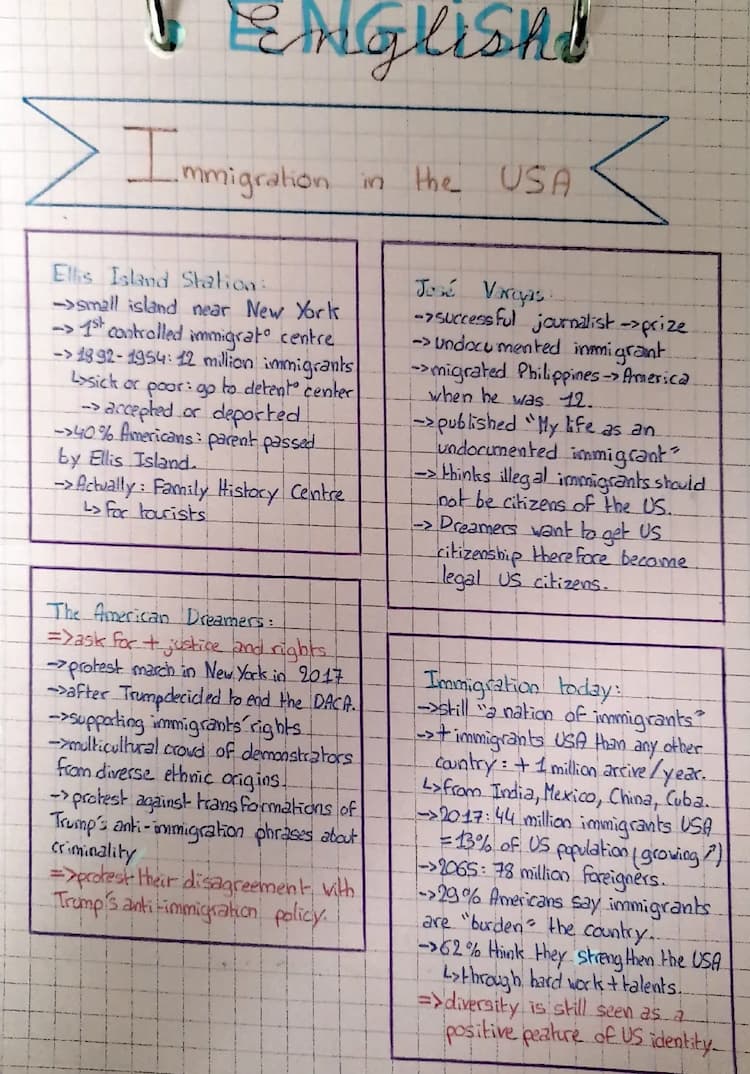 English
Immigration in the USA
Ellis Island Station:
→small island near New York
→ 1st controlled immigrat° centre
→1892-1954: 12 million immigrants
↳sick or poor: go to detent° center
→accepted or deported
→40% Americans: parent passed
by Ellis Island.
→Actually: Family History Centre
↳for tourists
José Vargas:
→successful journalist→prize
→undocumented immigrant
→migrated Philippines→America
when he was 12.
→published "My life as an
undocumented immigrant"
→thinks illegal immigrants should
not be citizens of the US.
→ Dreamers want to get US
citizenship therefore become
legal US citizens.
The American Dreamers:
=>ask for + justice and rights
→protest march in New York in 2017
→after Trump decided to end the DACA.
→supporting immigrants' rights
→multicultural crowd of demonstrators
from diverse ethnic origins.
→protest against transformations of
Trump's anti-immigration phrases about
criminality
=>protest their disagreement with
Trump's anti-immigration policy.
Immigration today:
→still "a nation of immigrants"
→+ immigrants USA than any other
country: + 1 million arrive/year.
↳from India, Mexico, China, Cuba.
→2017: 44 million immigrants USA
=13% of US population (growing ↗)
→2065: 78 million foreigners.
→29% Americans say immigrants
are "burden" the country.
→62% think they strengthen the USA
↳through hard work + talents.
=>diversity is still seen as a
positive peature of US identity.